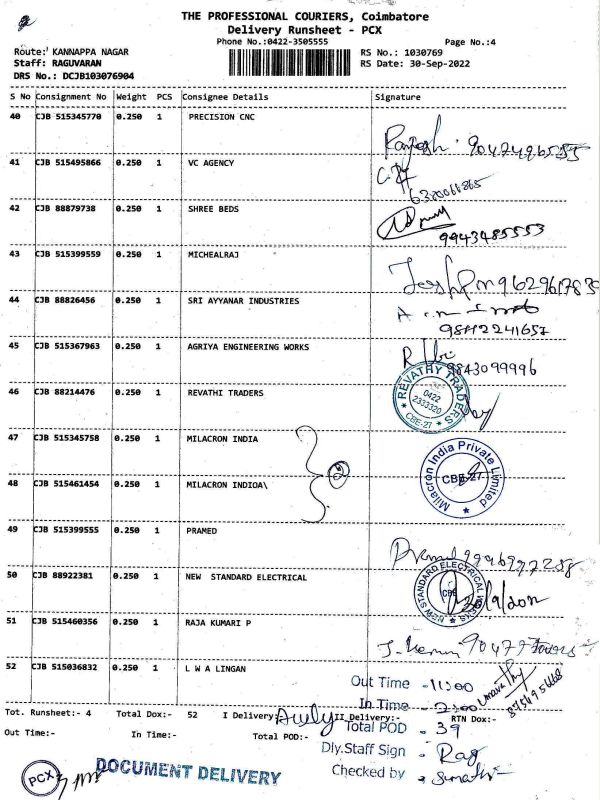 THE PROFESSIONAL COURIERS, Coimbatore
Delivery Runsheet - PCX
Phone No.:0422-3505555 Page No.:4
Route: KANNAPPA NAGAR RS No.: 1030769
Staff: RAGUVARAN RS Date: 30-Sep-2022
DRS No.: DCJB103076904
S No Consignment No Weight PCS Consignee Details Signature
40 CJB 515345770 0.250 1 PRECISION CNC
41 CJB 515495866 0.250 1 VC AGENCY
42 CJB 88879738 0.250 1 SHREE BEDS
9943485553
43 CJB 515399559 0.250 1 MICHEALRAJ
44 CJB 88826456 0.250 1 SRI AYYANAR INDUSTRIES
45 CJB 515367963 0.250 1 AGRIYA ENGINEERING WORKS
9843099996
46 CJB 88214476 0.250 1 REVATHI TRADERS
REVATHY TRADERS
0422
2333320
CBE-27
47 CJB 515345758 0.250 1 MILACRON INDIA
Milacron India Private Limited
CBE-27
48 CJB 515461454 0.250 1 MILACRON INDIOA\
49 CJB 515399555 0.250 1 PRAMED
50 CJB 88922381 0.250 1 NEW STANDARD ELECTRICAL
NEW STANDARD ELECTRICAL WORKS
51 CJB 515460356 0.250 1 RAJA KUMARI P
52 CJB 515036832 0.250 1 L W A LINGAN
Out Time - 11:00
In Time - 2:00
Tot. Runsheet:- 4 Total Dox:- 52 I Delivery:- II Delivery:- RTN Dox:-
Total POD - 39
Out Time:- In Time:- Total POD:-
Dly.Staff Sign - Rag
Checked by
PCX
DOCUMENT DELIVERY